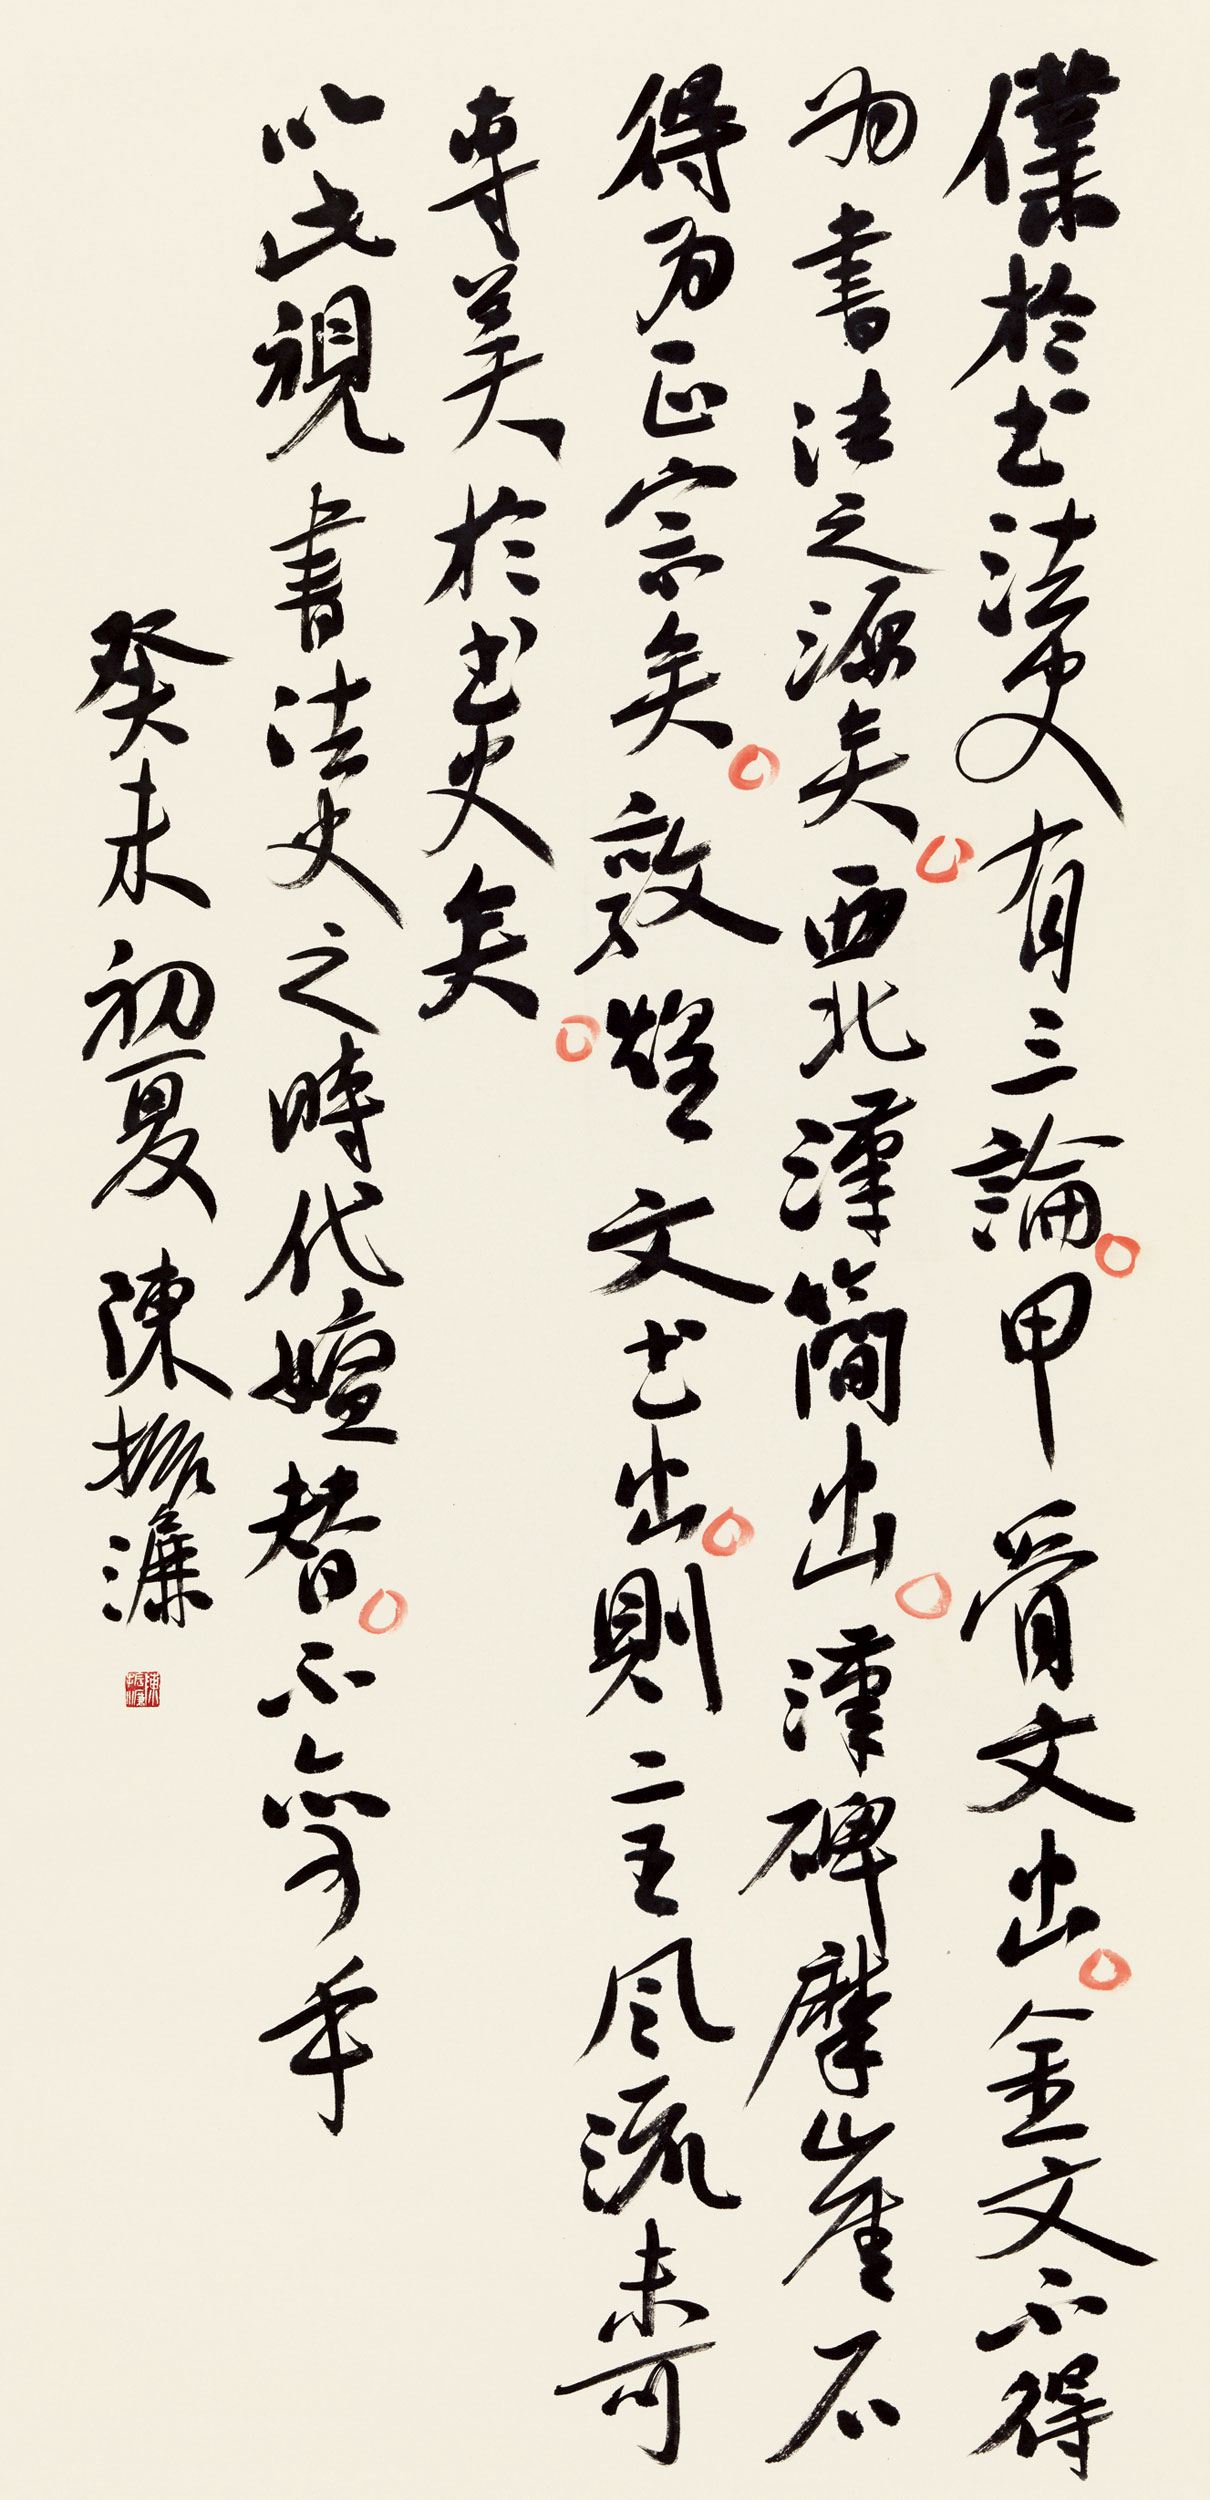 僕於书法史有三論甲骨文出金文不得
为書法之源矣西北漢簡出漢碑摩崖不
得为正宗矣敦煌文书出則二王风流未可
專美於书史矣
以此視書法史之時代嬗替不亦可乎
癸未初夏陳振濂
陳振濂